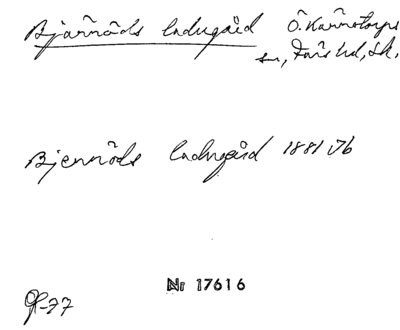 Bjärröds ladugård Ö. Kärrstorps
sn, Färs hd, Sk.
Bjerröds ladugård 1881 Jb
Nr 17616